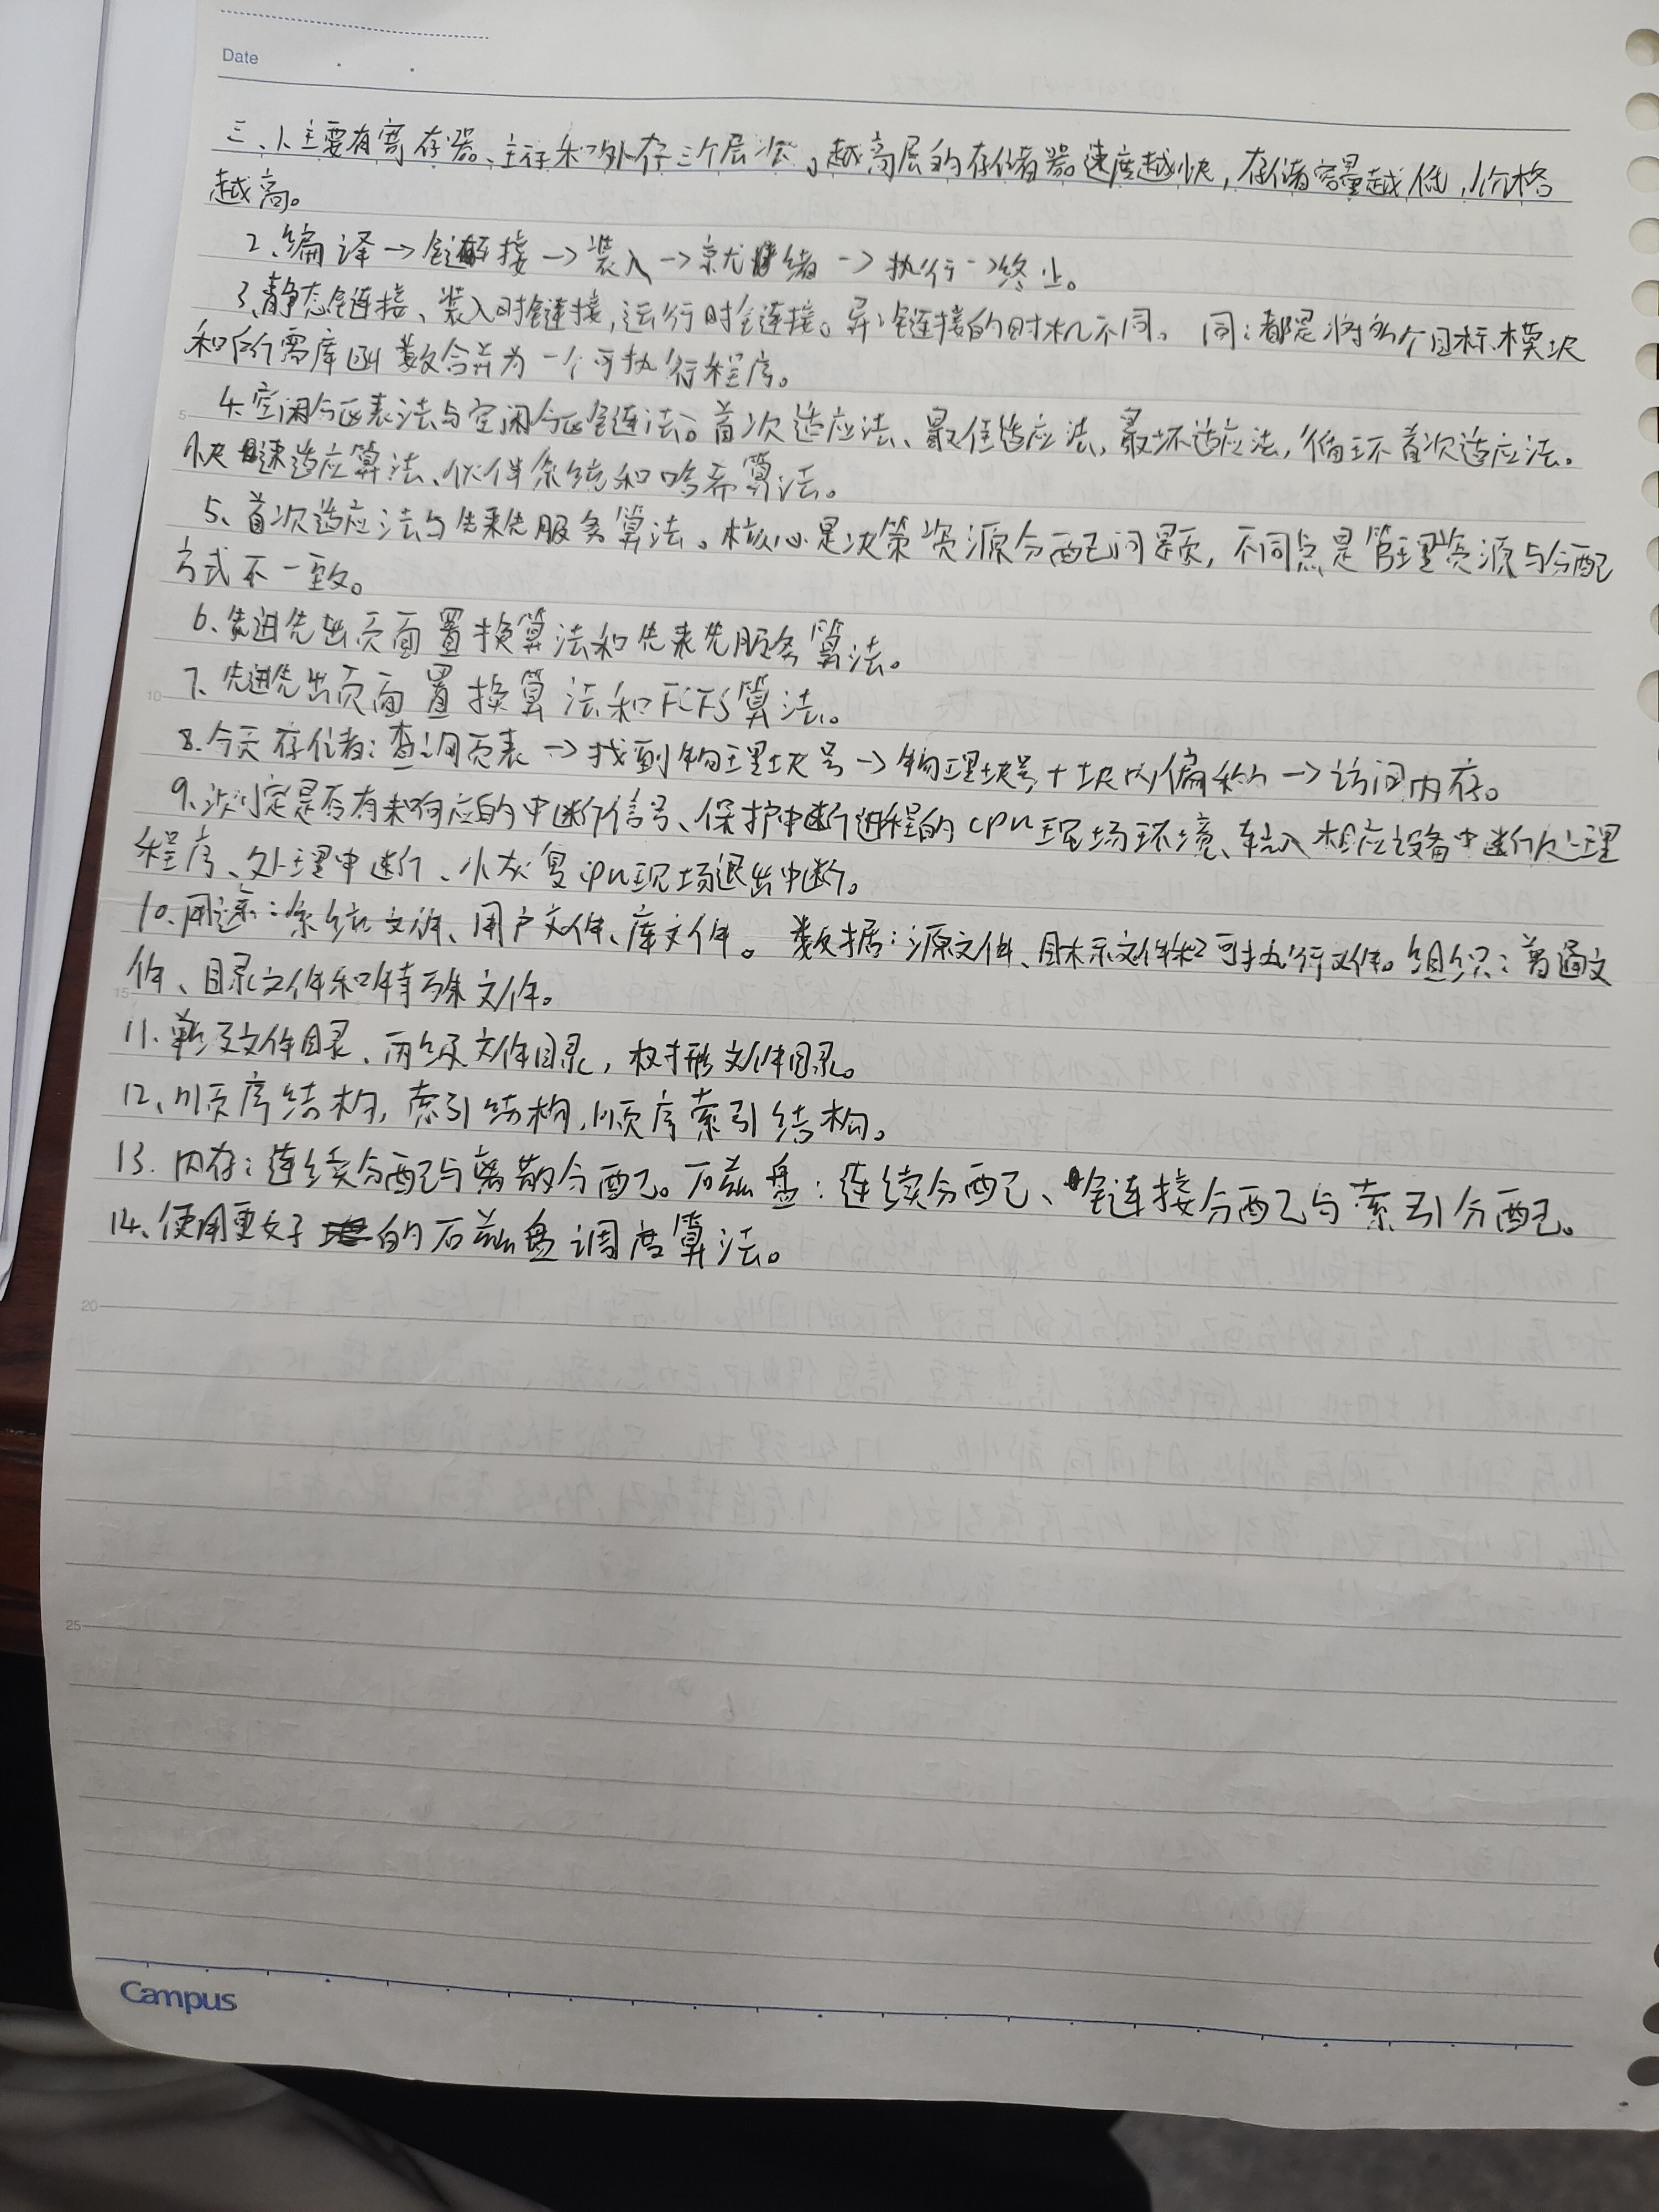 Date
三、1、主要有寄存器、主存和外存三个层次。越高层的存储器速度越快,存储容量越低,价格
越高。
2、编译→链接→装入→就绪→执行→终止。
3、静态链接、装入时链接,运行时链接。异:链接的时机不同。同:都是将多个目标模块
和所需库函数合并为一个可执行程序。
5
4、空闲分区表法与空闲分区链法。首次适应法、最佳适应法,最坏适应法,循环首次适应法。
快速适应算法、伙伴系统和哈希算法。
5、首次适应法与先来先服务算法。核心是决策资源分配问题,不同点是管理资源与分配
方式不一致。
6、先进先出页面置换算法和先来先服务算法。
10
7、先进先出页面置换算法和FCFS算法。
8、存储:查询页表→找到物理块号→物理块号+块内偏移→访问内存。
9、测定是否有未响应的中断信号、保护中断进程的CPU现场环境、转入相应设备中断处理
程序、处理中断、恢复CPU现场退出中断。
10、用途:系统文件、用户文件、库文件。数据:源文件、目标文件和可执行文件。组织:普通文
15
件、目录文件和特殊文件。
11、单级文件目录、两级文件目录,树形文件目录。
12、顺序结构,索引结构,顺序索引结构。
13. 内存:连续分配与离散分配。磁盘:连续分配、链接分配与索引分配。
14、使用更好的磁盘调度算法。
20
25
Campus